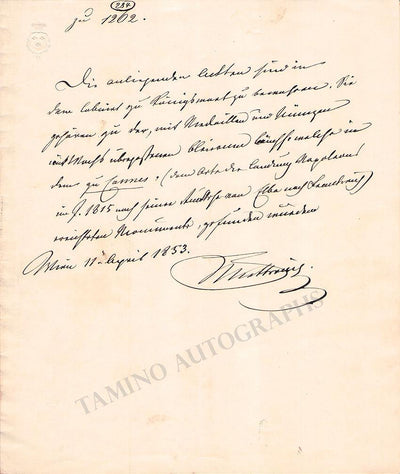 284
zu 1202.
Die anliegenden Akten sind in
dem Cabinet zu Königswart zu bewahren. Sie
gehören zu der, mit Medaillen und Münzen
mit Wachs übergossenen bleiernen Büchse welche in
dem zu Cannes, (dem Orte der Landung Napoleons
im J. 1815 nach seiner Rückkehr von Elba nach Frankreich)
errichteten Monumente, gefunden wurden
Wien 11n April 1853.
Metternich.
TAMINO AUTOGRAPHS